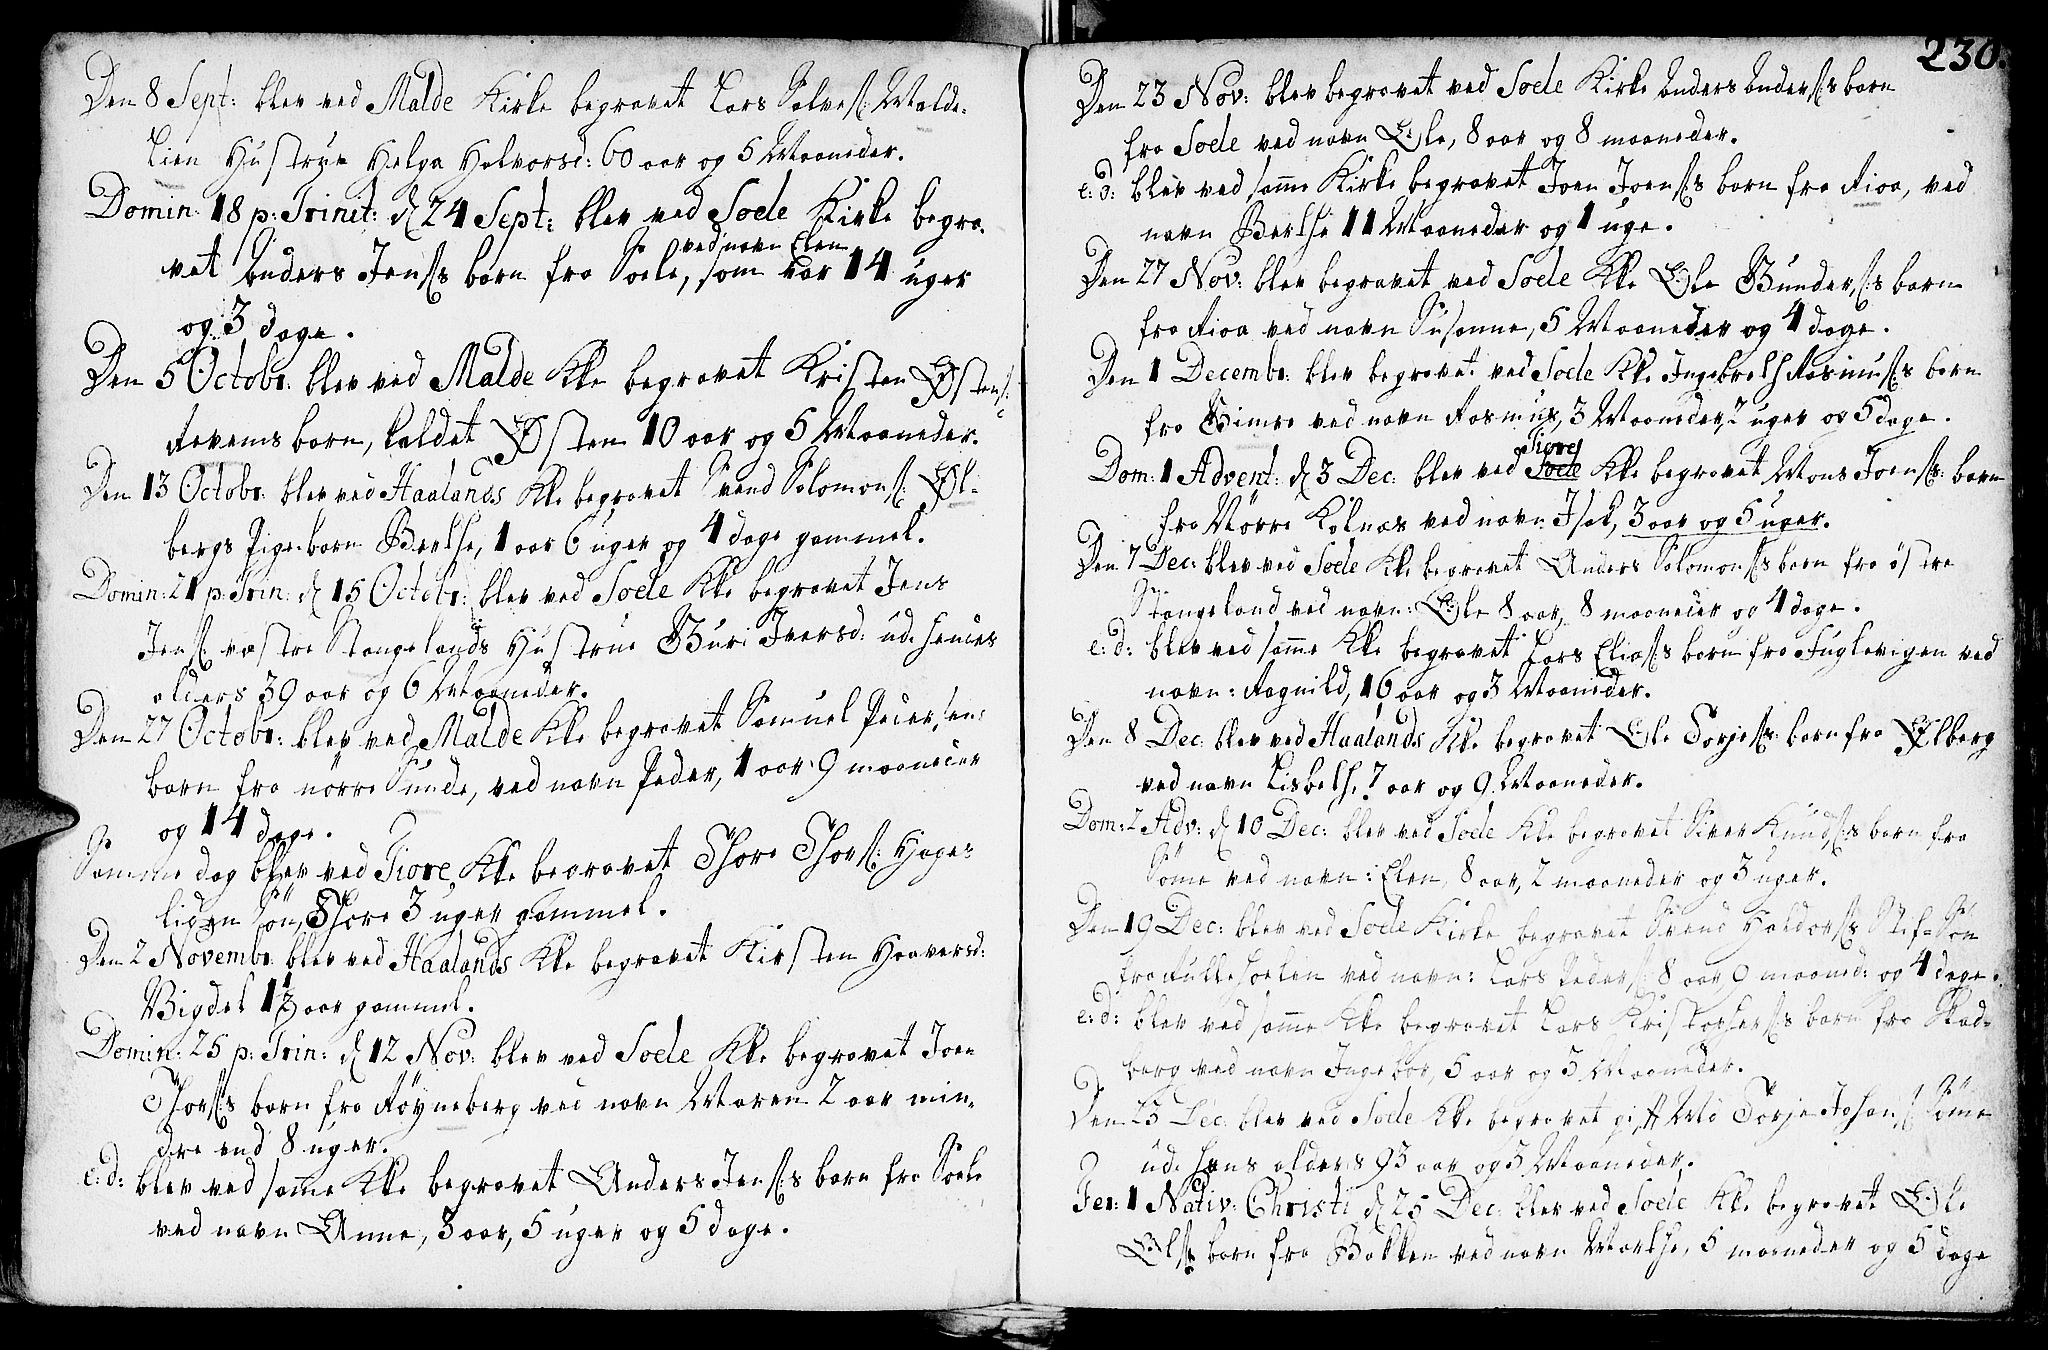 Den 8 Sept: blev ved Malde Kirke begravet Lars Salves: Malde-
Lien Hustrye Helga Halvorsd: 60 aar og 5 Maaneder.
Domin: 18 p: Trinit: d 24 Sept: blev ved Soele Kirke begra-
vet Anders Jens:s barn fra Soele, ved navn Elen som var 14 uger
og 3 dage.
Den 5 Octobr: blev ved Malde Kke begravet Kristen Østens:
Revems barn, kaldet Østen 10 aar og 5 Maaneder.
Den 13 Octobr: blev ved Haalands Kke begravet Svend Solomons: Øl-
bergs Pige-barn Berthe, 1 aar 6 uger og 4 dage gammel.
Domin: 21 p: Trin: d 15 Octobr: blev ved Soele Kke begravet Jens
Jens: vestre Stangelands Hustrue Guri Iversd: ud: hendes
alders 39 aar og 6 Maaneder.
Den 27 Octobr: blev ved Malde Kke begravet Samuel Pedersens
barn fra nörre Sunde, ved navn Peder, 1 aar 9 maaneder
og 14 dage.
Samme dag blev ved Tiore Kke begravet Thore Thors: Hage-
ligen Sön, Thore 3 uger gammel.
Den 2 Novembr: blev ved Haalands Kke begravet Kirsten Haaversd:
Bigdel 1 1/2 aar gammel.
Domin: 25 p: Trin: d 12 Nov: blev ved Soele Kke begravet Joen
Thors:s barn fra Röyneberg ved navn Maren 2 aar min-
dre end 8 uger.
e: d: blev ved samme Kke begravet Anders Jens:s barn fra Soele
ved navn Anna, 3 aar, 5 uger og 5 dage.
230.
Den 23 Nov: blev begravet ved Soele Kirke Anders Anders:s barn
fra Soele ved navn Ole, 8 aar og 8 maaneder.
e: d: blev ved samme Kirke begravet Joen Joens:s barn fra Rioa, ved
navn Berthe 11 Maaneder og 1 uge.
Den 27 Nov: blev begravet ved Soele Kke Ole Gunders:s barn
fra Rioa ved navn Susanne, 5 Maaneder og 4 dage.
Den 1 Decembr: blev begravet ved Soele Kke Ingebreth Rasmus:s barn
fra Gimre ved navn Rasmus, 3 Maaneder, 2 uger og 5 dage.
Dom: 1 Advent: d 3 Dec: blev ved Soele Tiore Kke begravet Mons Joens:s: barn
fra Nörre Kolnæs ved navn Isak, 3 aar og 5 uger.
Den 7 Dec: blev ved Soele Kke begravet Anders Solomons:s barn fra östre
Stangeland ved navn: Ole 8 aar, 8 maaneder og 4 dage.
e: d: blev ved samme Kke begravet Lars Elias:s barn fra Fuglevigen ved
navn: Ragnild, 16 aar og 3 Maaneder.
Den 8 Dec: blev ved Haalands Kke begravet Ole Torjes:s: barn fra Ølberg
ved navn Lisbeth, 7 aar og 9 Maaneder.
Dom: 2 Adv: d 10 Dec: blev ved Soele Kke begravet Siver Knuds:s barn fra
Söme ved navn: Elen, 8 aar, 2 maaneder og 3 uger.
Den 19 Dec: blev ved Soele Kirke begravet Svend Haldors:s Stif-Sön
fra ved navn: Lars Peders: 8 aar 9 maaned: og 4 dage.
e: d: blev ved samme Kke begravet Lars Kristophers:s barn fra Skad-
berg ved navn Ingebor, 5 aar og 3 Maaneder.
Den 23 Dec: blev ved Soele Kke begravet gift Md Torje Johans: Söme
ud: hans alders 93 aar og 3 Maaneder.
Fer: 1 Nativ: Christi d 25 Dec: blev ved Soele Kke begravet Ole
Ols:s barn fra Bakken ved navn Marthe, 5 maaneder og 5 dage